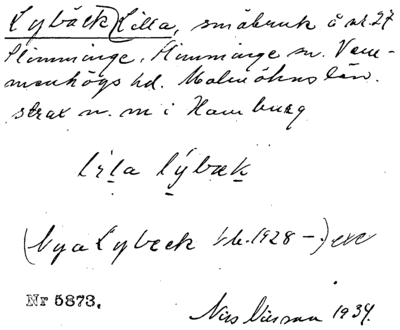 Lybäck, Lilla, småbruk å nr 27
Slimminge, Slimminge sn. Vem-
menhögs hd. Malmöhus län.
strax n. m i Hamburg
lila lýbæk
(Nya Lybeck 1928 –)
Nr 5873.
Nils 1934.